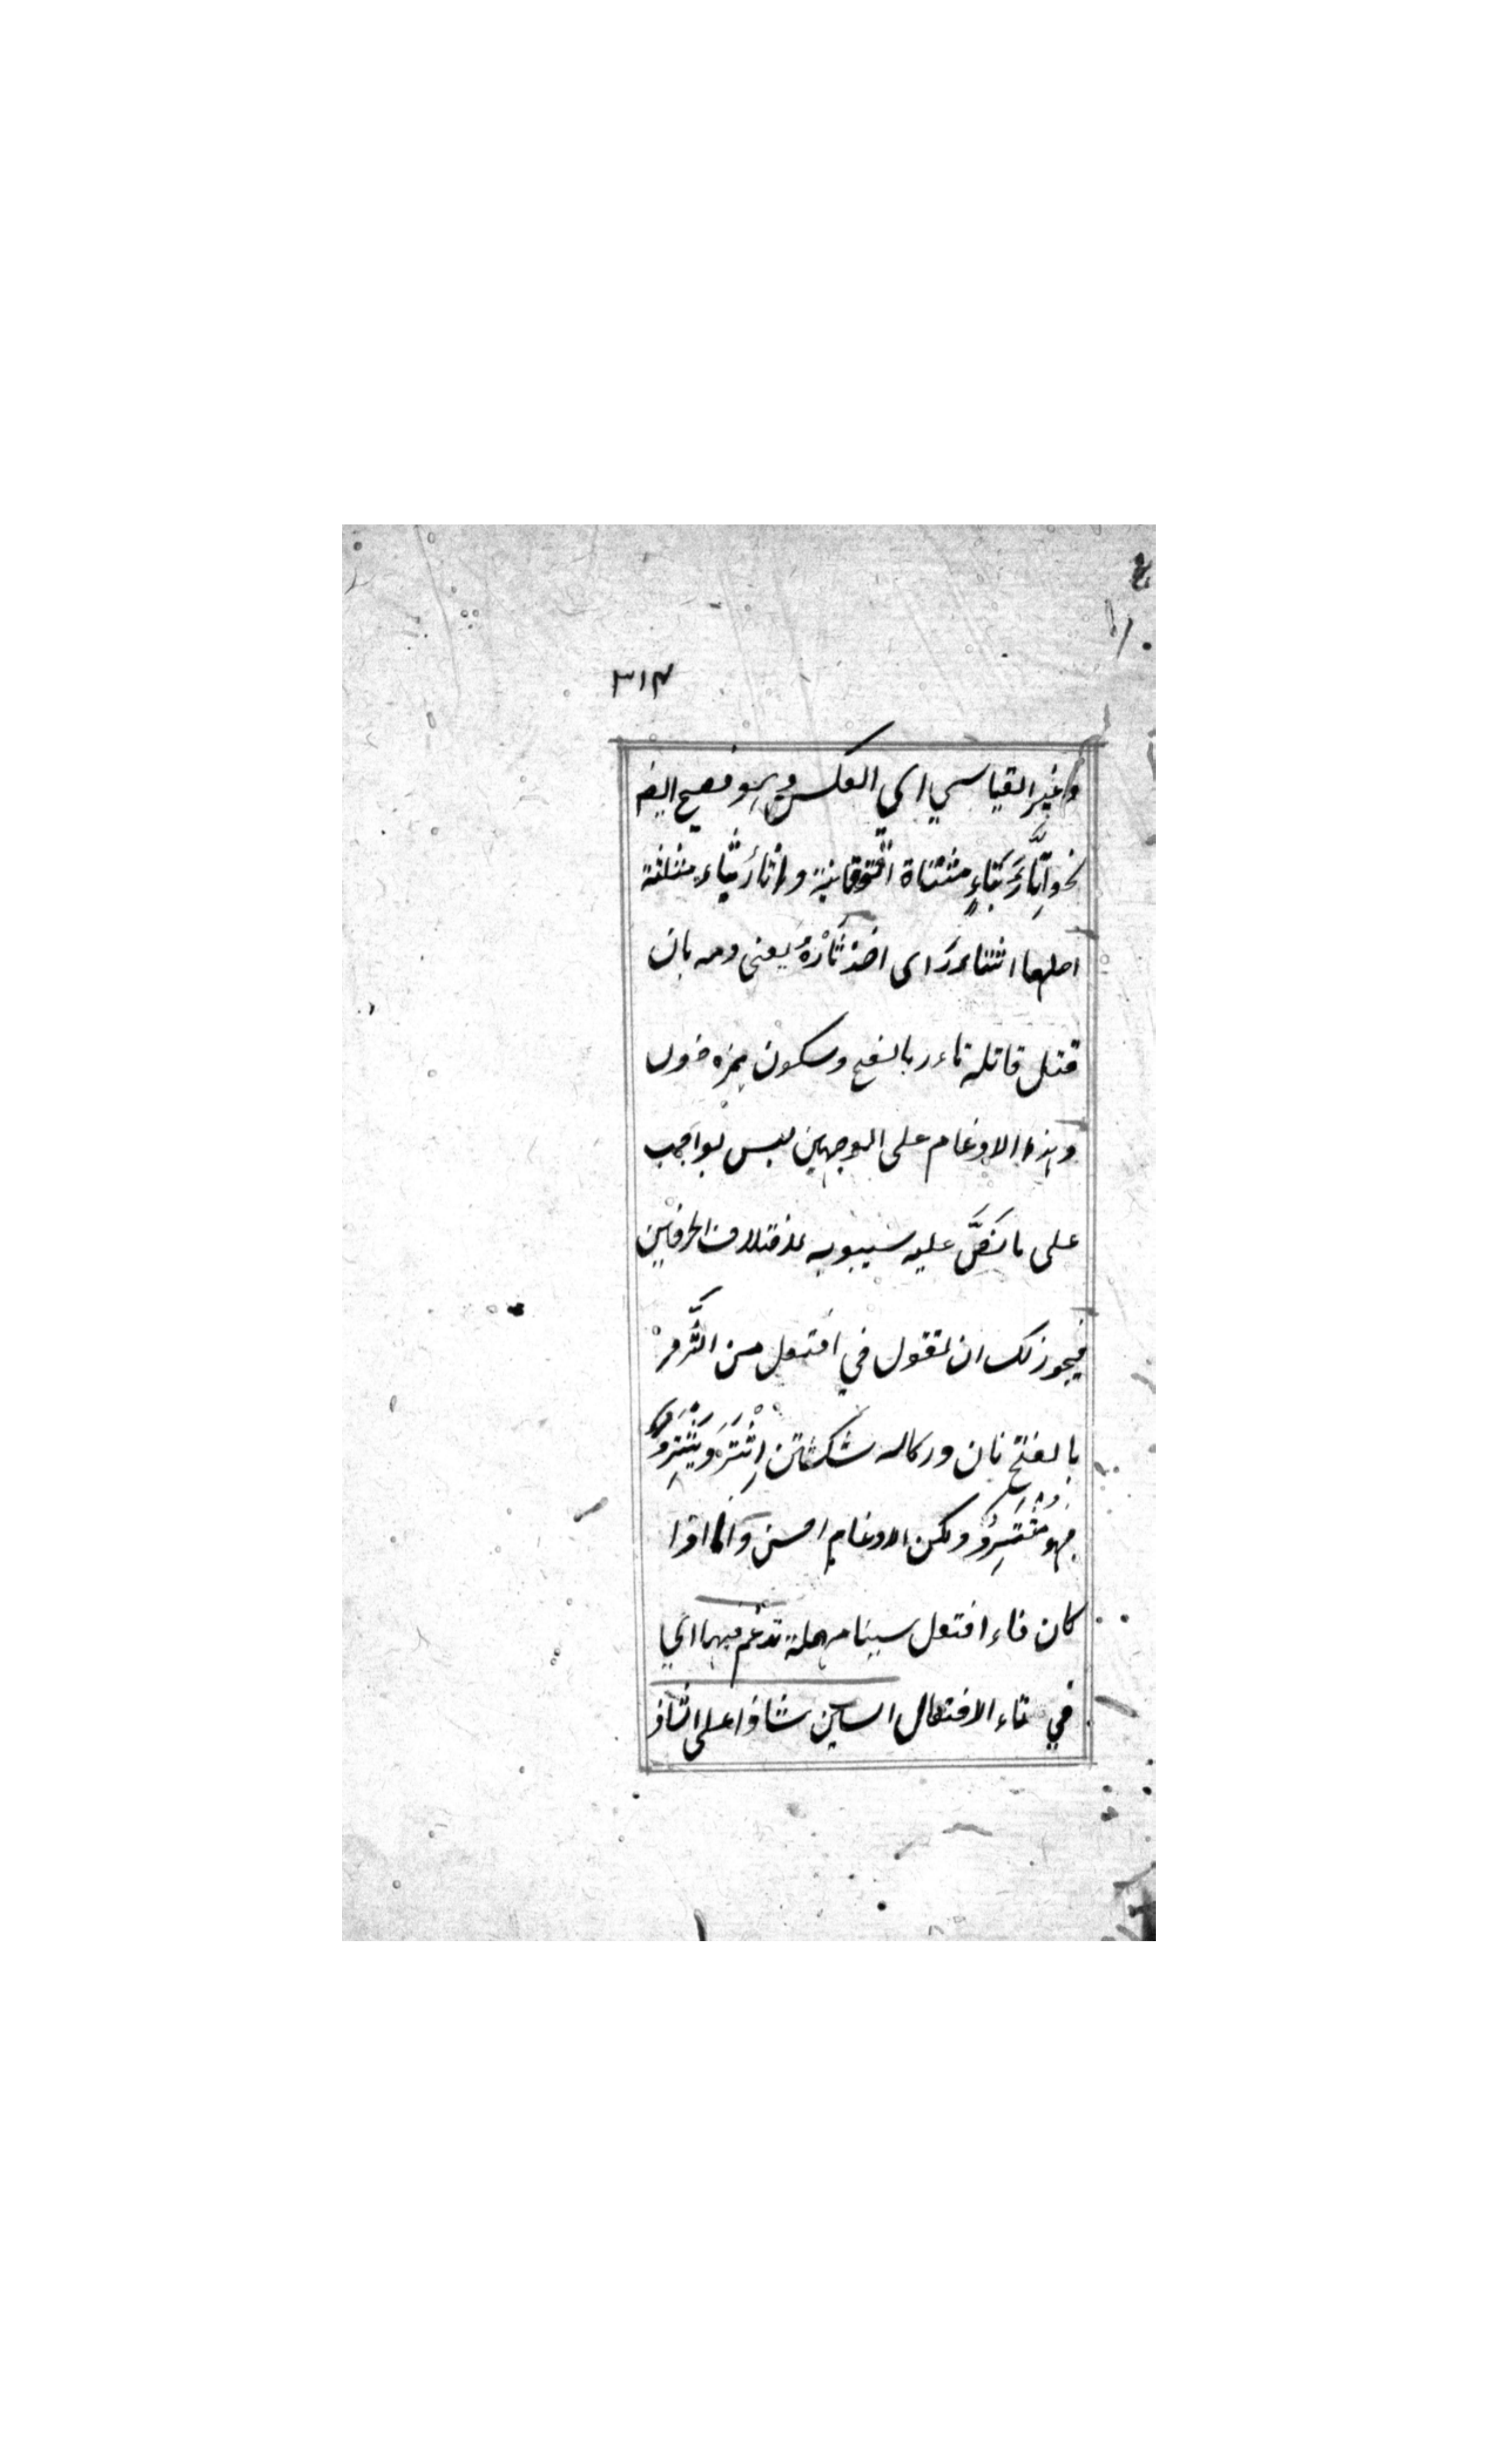 ٣١٣
وغير القياسي اي العكس وهو فصيح ايضا
نحو اتَّأَرَ بتاءٍ مثناة الفوقانية و اثّأرَ بثاء مثلثة
اصلهما اثتاءرَ اى اخذ ثَأْرَهُ يعنى ومه بان
قتل قاتله ثاءر بالفتح وسكون همزه خون
وهذا الادغام على الوجهين ليس بواجب
على ما نَصَّ عليه سيبويه لاختلاف الحرفين
فيجوز لك ان تقول في افتعل من الثَّرْد
بالفتح نان در كاسه شكستن اِثْتَرَدَ يَثْتَرِدُ
فهو مُثْتَرِدٌ ولكن الادغام احسن واما اذا
كان فاء افتعل سينا مهملة تدغم فيها اي
في تاء الافتعال السين شاذا على الشاذ